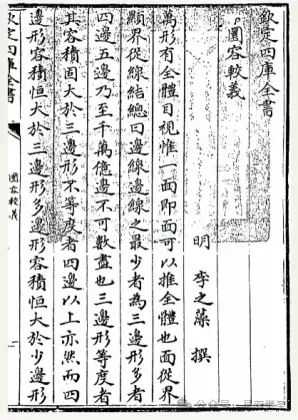 欽定四庫全書
圜容較義
明 李之藻 撰
萬形有全體目視惟一面即面可以推全體也面從界
顯界從線結總曰邊線邊線之最少者為三邊形多者
四邊五邊乃至千萬億邊不可數盡也三邊形等度者
其容積固大於三邊形不等度者四邊以上亦然而四
邊形容積恒大於三邊形多邊形容積恒大於少邊形
欽定四庫全書
圜容較義
一
公众号